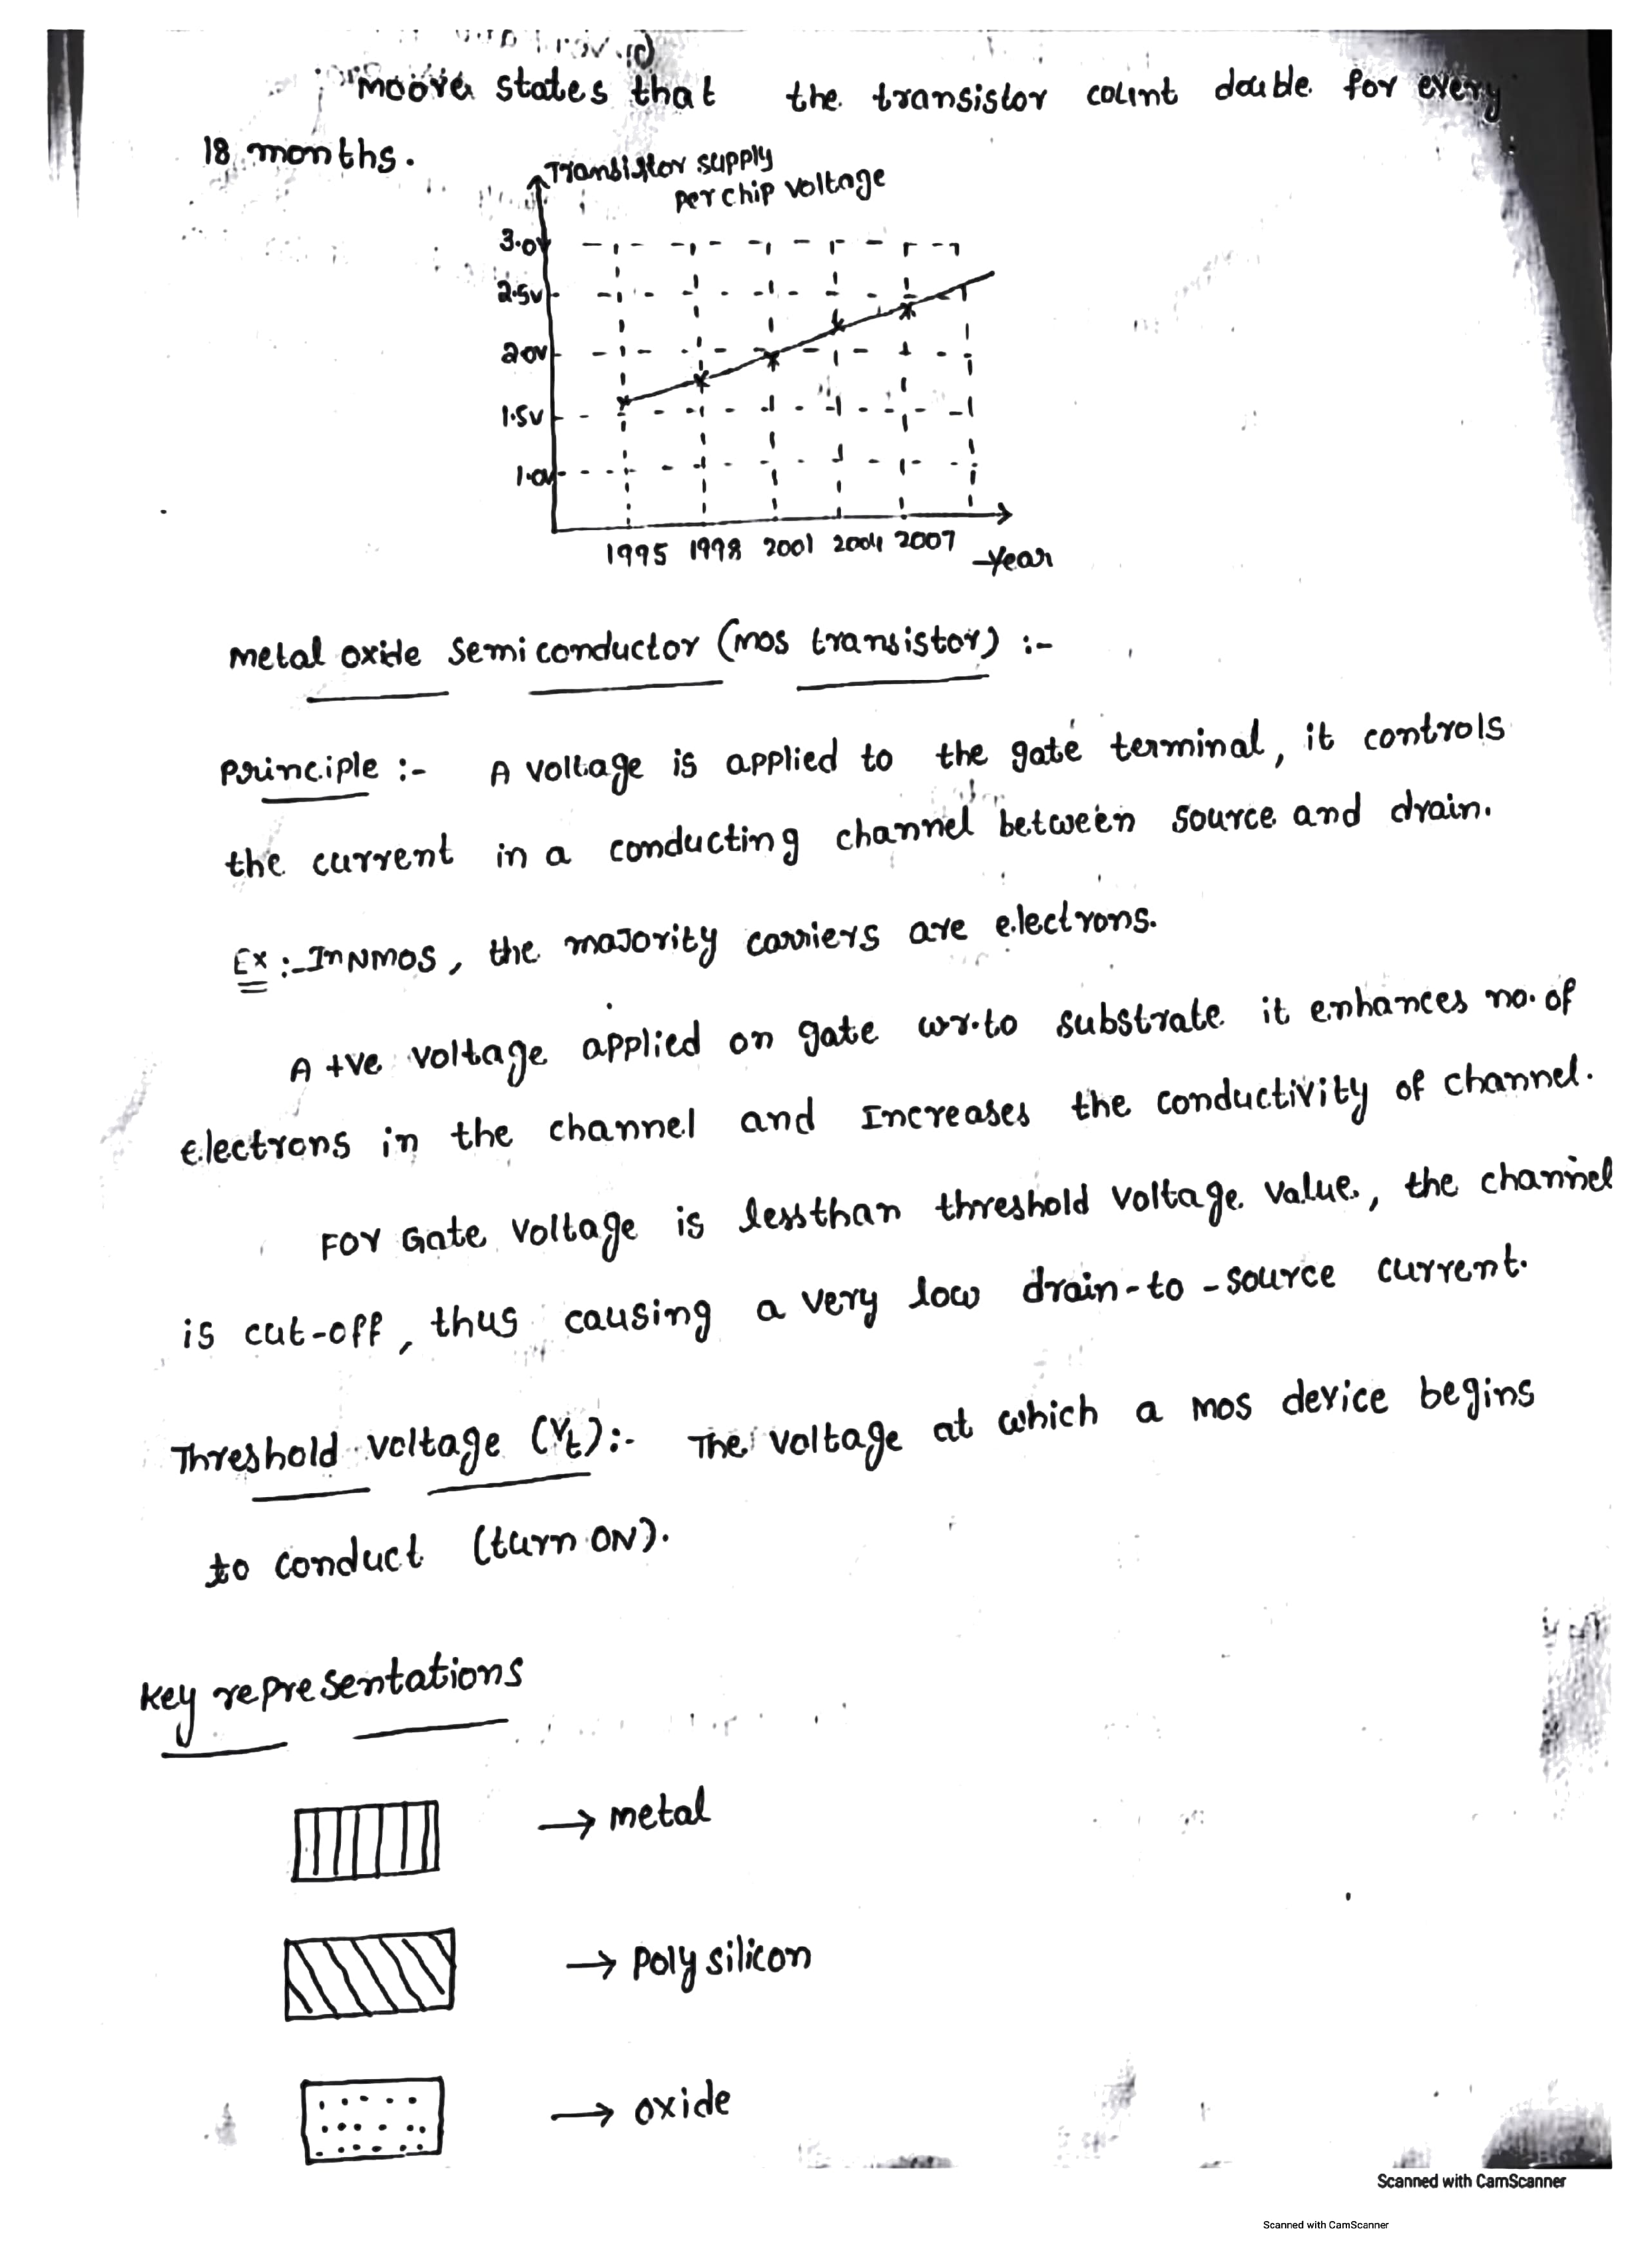 Moore states that the transistor count double for every
18 months.
Transistor supply
per chip voltage
3.0V
2.5V
2.0V
1.5V
1.0V
1995 1998 2001 2004 2007
Year
Metal oxide Semiconductor (MOS transistor) :-
Principle :- A voltage is applied to the gate terminal, it controls
the current in a conducting channel between source and drain.
Ex :- In NMOS, the majority carriers are electrons.
A +ve voltage applied on gate w.r.to substrate it enhances no. of
electrons in the channel and Increases the conductivity of channel.
For Gate voltage is lessthan threshold voltage value, the channel
is cut-off, thus causing a very low drain-to-source current.
Threshold voltage (Vt):- The voltage at which a mos device begins
to conduct (turn ON).
Key representations
→ metal
→ Poly silicon
→ oxide
Scanned with CamScanner
Scanned with CamScanner